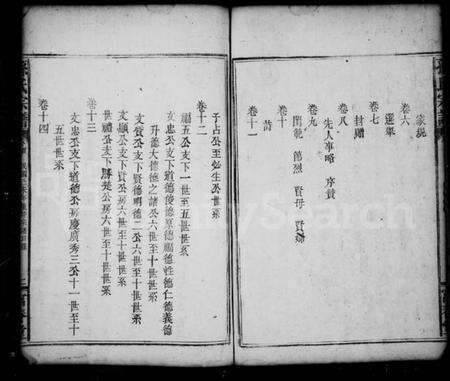 家規
卷六
選舉
卷七
封贈
卷八
先人事略 序賛
卷九
閫範 節烈 賢母 賢婦
卷十
詩
卷十一
子占公至仙生公世系
卷十二
福五公支下一世至五世世系
文忠公支下道德俊德厚德福德姓德仁德義德
升德大德德之諸公六世至十世世系
文質公支下賢德明德二公六世至十世世系
文顯公支下貴公房六世至十世世系
世系
卷十三
文忠公支下道德公房慶廣秀三公十一世至十
五世世系
卷十四